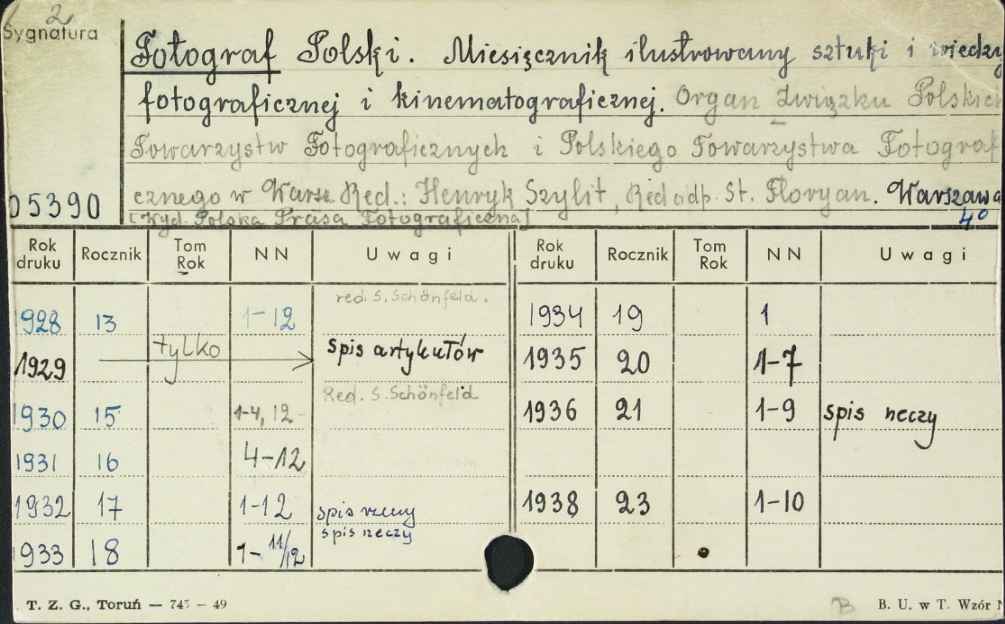 2
Sygnatura
Fotograf Polski. Miesięcznik ilustrowany sztuki i wiedzy
fotograficznej i kinematograficznej. Organ Związku Polskich
Towarzystw Fotograficznych i Polskiego Towarzystwa Fotografi
cznego w Warsz. Red.: Henryk Szylit, Red. odp. St. Floryan. Warszawa
05390
[Wyd. Polska Prasa Fotograficzna] 4°
Rok druku Rocznik Tom Rok NN Uwagi Rok druku Rocznik Tom Rok NN Uwagi
red. S. Schönfeld.
928 13 1-12 1934 19 1
1929 tylko spis artykułów 1935 20 1-7
Red. S. Schönfeld
1930 15 1-4, 12 1936 21 1-9 spis rzeczy
1931 16 4-12
1932 17 1-12 spis rzeczy 1938 23 1-10
spis rzeczy
1933 18 1-11/12
T. Z. G., Toruń — 745 — 49 B B. U. w T. Wzór